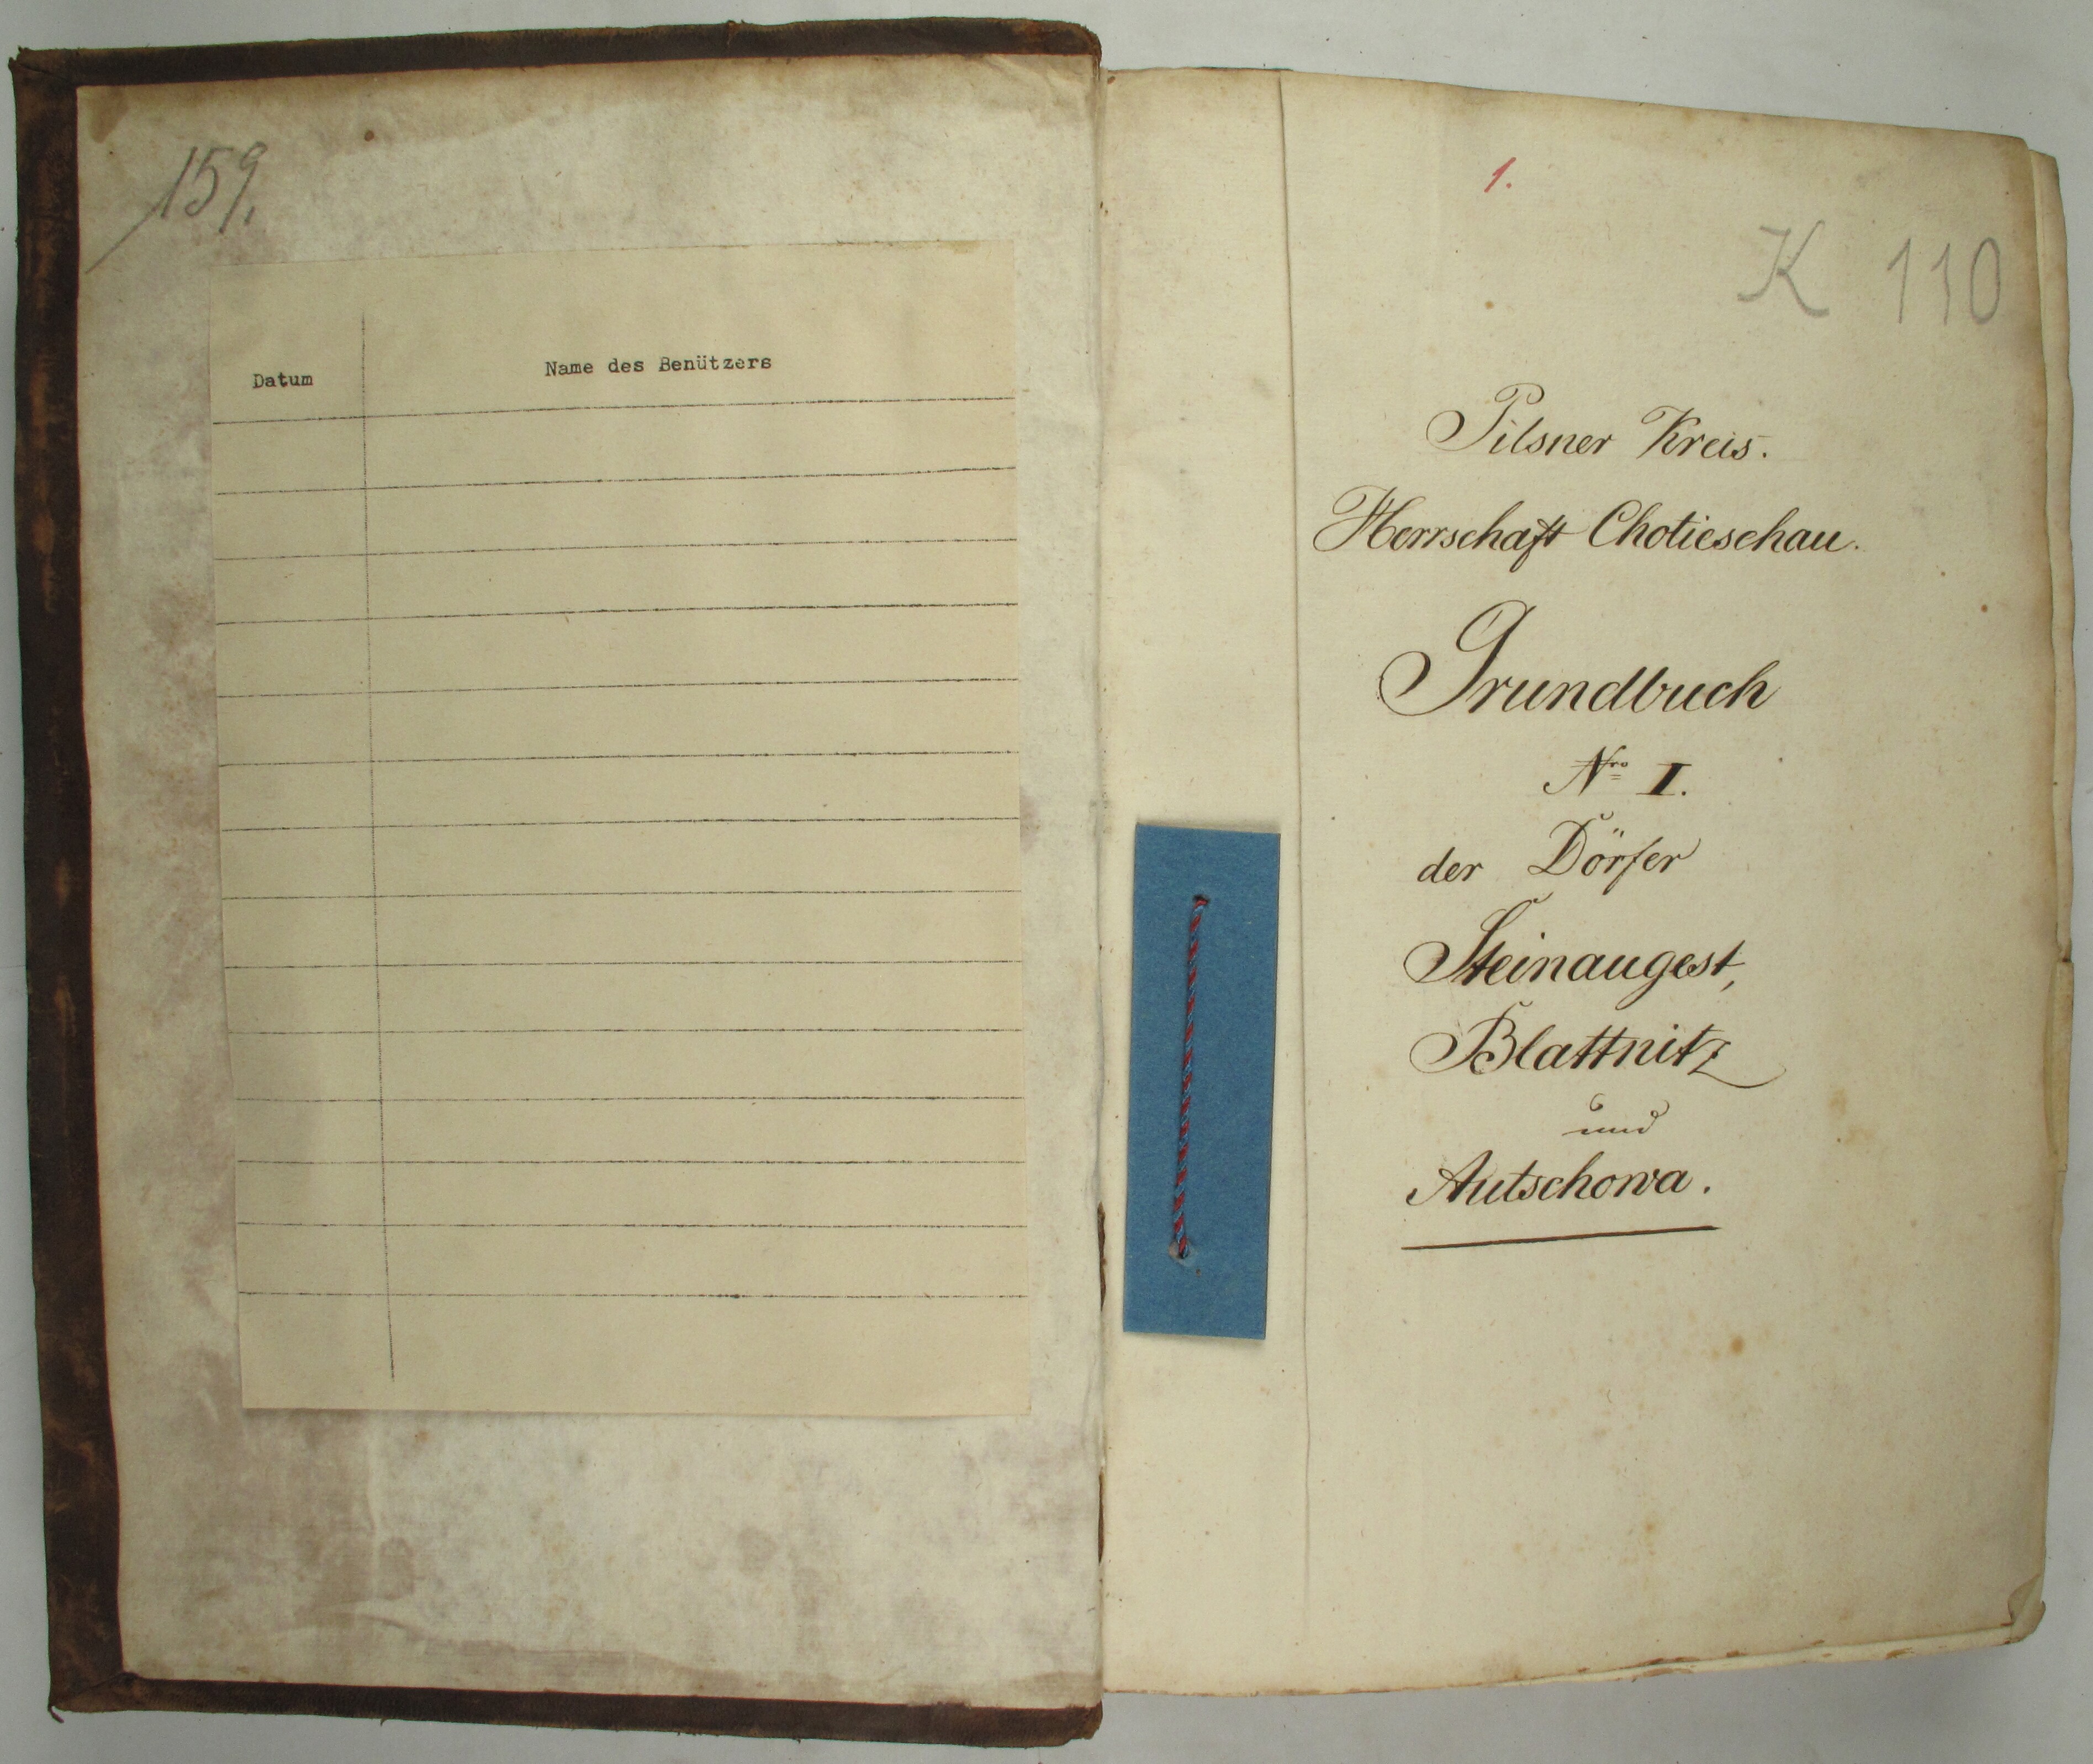 159.
Datum Name des Benützers
1.
K 110
Pilsner Kreis.
Herrschaft Chotieschau.
Grundbuch
Nro I.
der Dörfer
Steinaugest,
Blattnitz
und
Autschowa.